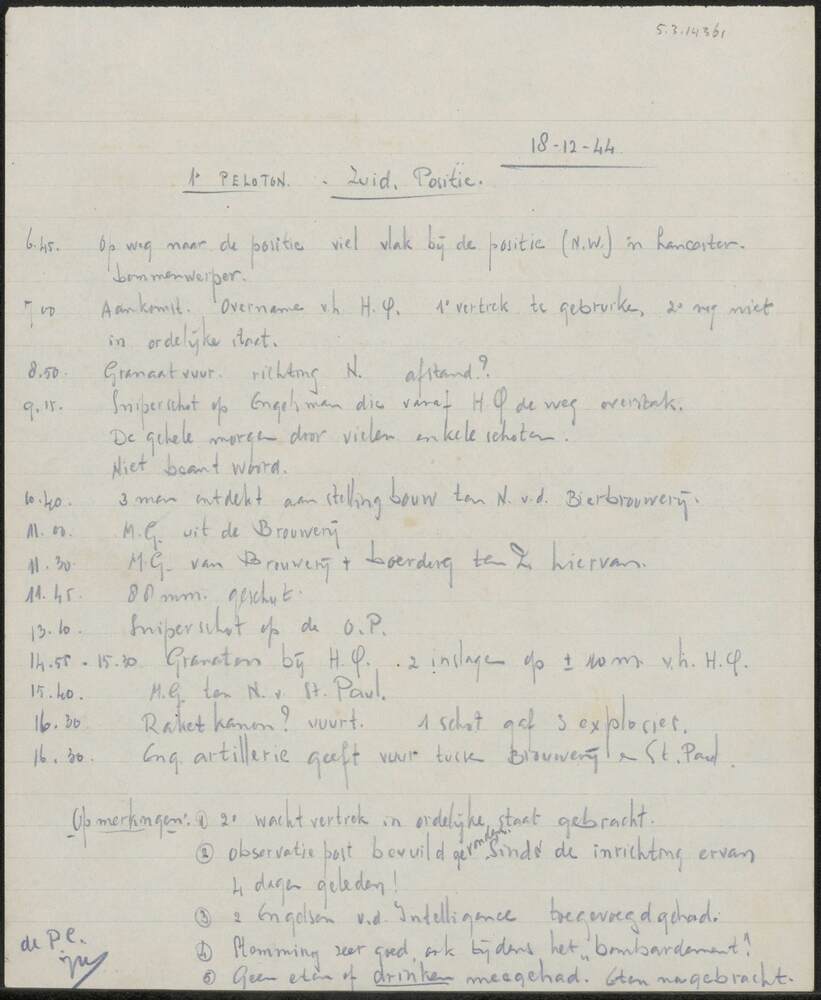 5.3.14361
18-12-44
1e PELOTON. - Zuid. Positie.
6.45. Op weg naar de positie viel vlak bij de positie (N.W.) in Lancaster-
bommenwerper.
7.00 Aankomst. Overname v.h. H.Q. 1e vertrek te gebruiken, 2e nog niet
in ordelijke staat.
8.50. Granaatvuur. richting N. afstand?
9.15. Sniperschot op Engelsman die vanaf HQ de weg overstak.
De gehele morgen door vielen enkele schoten.
Niet beantwoord.
10.40. 3 man ontdekt aan stellingbouw ten N. v.d. Bierbrouwerij.
11.00. M.G. uit de Brouwerij
11.30 M.G. van Brouwerij + boerderij ten Z hiervan.
11.45. 88 mm. geschut.
13.10. Sniperschot op de O.P.
14.55 - 15.30 Granaten bij H.Q. - 2 inslagen op ± 10 m v.h. H.Q.
15.40. M.G. ten N. v. St. Paul.
16.30 Raketkanon? vuurt. 1 schot gaf 3 explosies.
16.30. Eng. artillerie geeft vuur Brouwerij en St. Paul.
Opmerkingen: ① 2e wachtvertrek in ordelijke staat gebracht.
② observatiepost bevuild gevonden. Sinds de inrichting ervan
4 dagen geleden!
③ 2 Engelsen v.d. Intelligence toegevoegd gehad.
④ Stemming zeer goed, ook tijdens het "bombardement"!
⑤ Geen eten of drinken meegehad. Eten nagebracht.
de P.C.